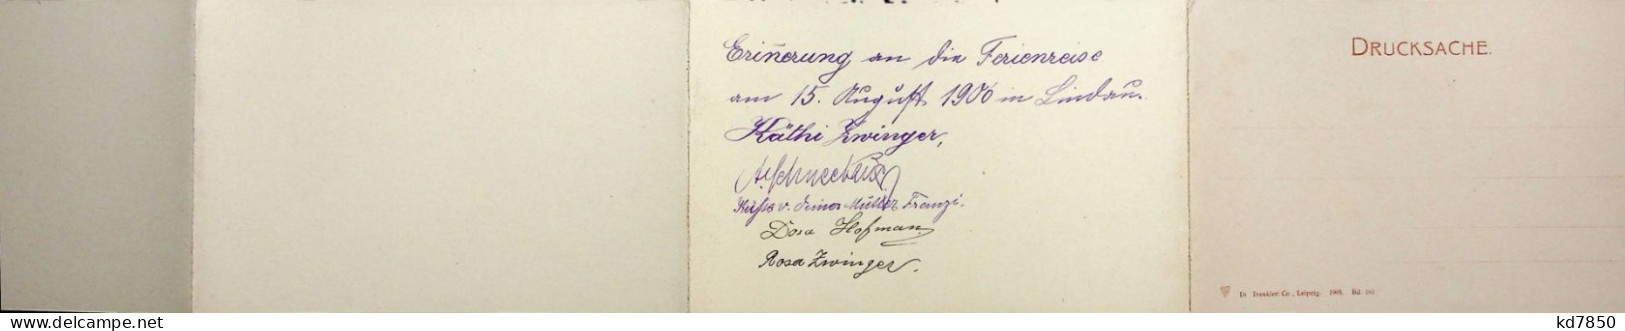 Erin̄erung an die Ferienreise
am 15. August 1906 in Lindau.
Käthi Zwinger,
Küsse v. deiner Müller Franzi.
Dora Hofmann
Rosa Zwinger.
DRUCKSACHE.
Dr. Trenkler Co., Leipzig. 1905. Bd.
www.delcampe.net
kd7850